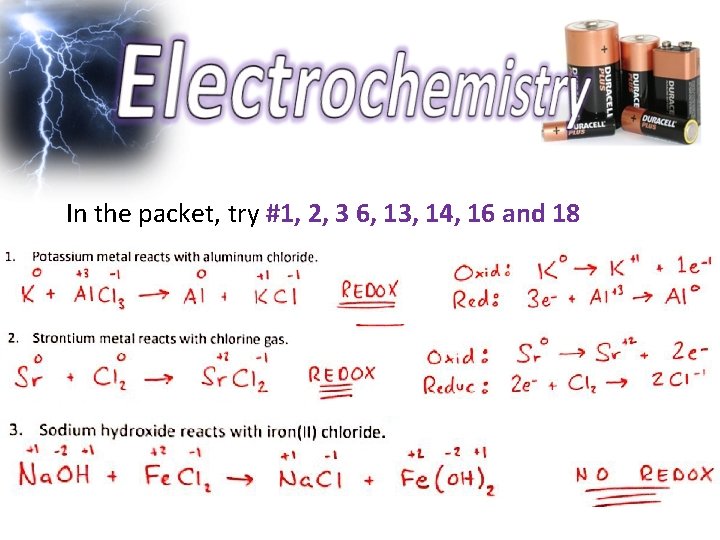 Electrochemistry
DURACELL PLUS
DURACELL PLUS
DURACELL
DURACELL PLUS
In the packet, try #1, 2, 3 6, 13, 14, 16 and 18
1. Potassium metal reacts with aluminum chloride.
0 +3 -1 0 +1 -1
K + AlCl₃ → Al + KCl REDOX
Oxid: K⁰ → K⁺¹ + 1e⁻¹
Red: 3e⁻ + Al⁺³ → Al⁰
2. Strontium metal reacts with chlorine gas.
0 0 +2 -1
Sr + Cl₂ → SrCl₂ REDOX
Oxid: Sr⁰ → Sr⁺² + 2e⁻
Reduc: 2e⁻ + Cl₂ → 2Cl⁻¹
3. Sodium hydroxide reacts with iron(II) chloride.
+1 -2 +1 +2 -1 +1 -1 +2 -2 +1
NaOH + FeCl₂ → NaCl + Fe(OH)₂ NO REDOX